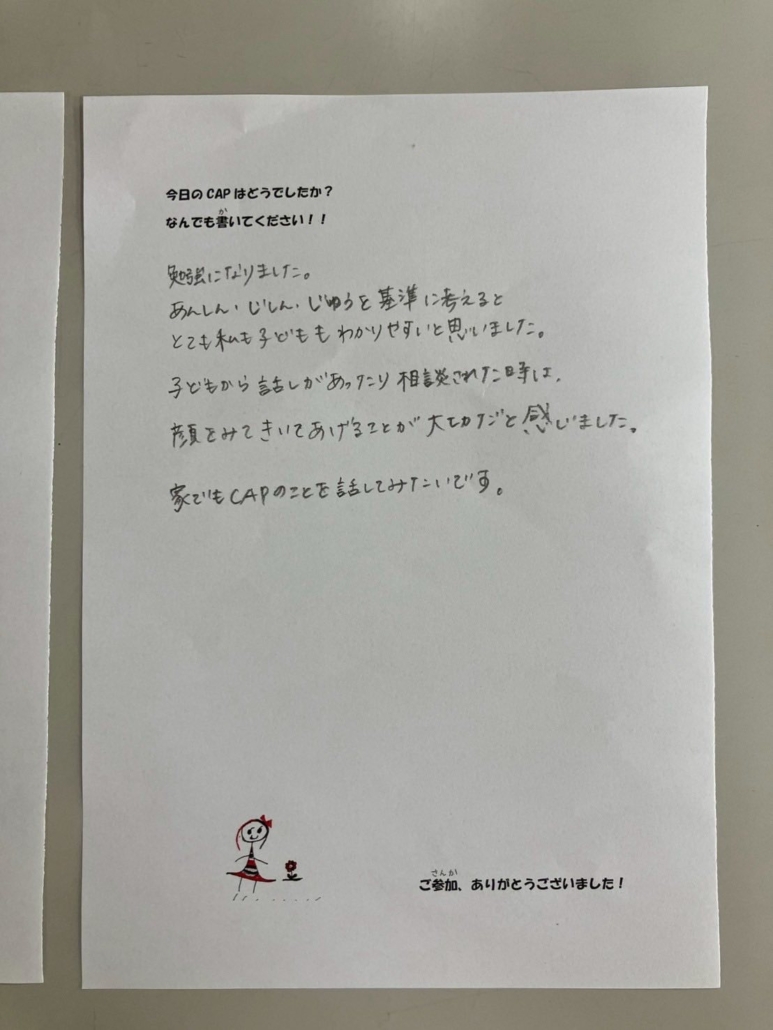 今日のCAPはどうでしたか？
なんでも書いてください！！
勉強になりました。
あんしん・じしん・じゆうを基準に考えると
とても私も子どももわかりやすいと思いました。
子どもから話しがあったり相談された時は、
顔をみてきいてあげることが大切だと感じました。
家でもCAPのことを話してみたいです。
ご参加、ありがとうございました！